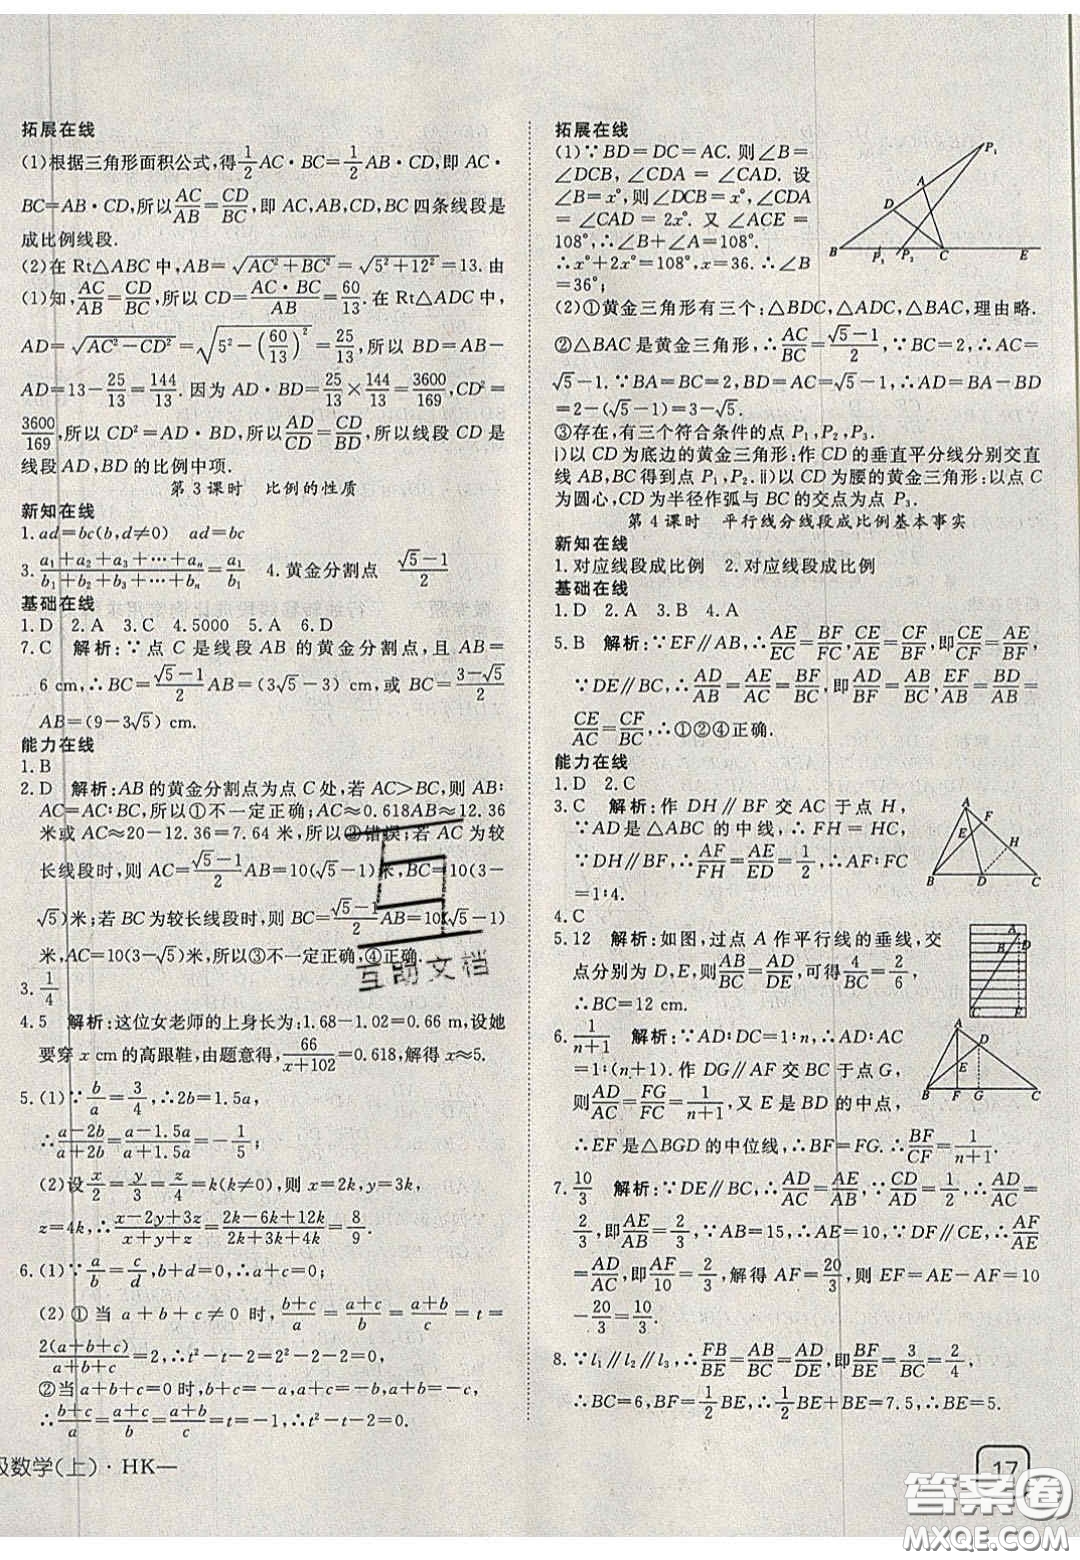 拓展在线
(1)根据三角形面积公式,得1/2 AC·BC=1/2 AB·CD,即 AC·
BC=AB·CD,所以AC/AB=CD/BC,即 AC,AB,CD,BC 四条线段是
成比例线段.
(2)在 Rt△ABC 中,AB=√(AC²+BC²)=√(5²+12²)=13. 由
(1)知,AC/AB=CD/BC,所以CD=AC·BC/AB=60/13. 在 Rt△ADC 中,
AD=√(AC²-CD²)=√(5²-(60/13)²)=25/13,所以 BD=AB-
AD=13-25/13=144/13. 因为 AD·BD=25/13×144/13=3600/169,CD²=
3600/169,所以 CD²=AD·BD,所以AD/CD=CD/BD,所以线段 CD 是
线段 AD,BD 的比例中项.
第 3 课时 比例的性质
新知在线
1. ad=bc(b,d≠0) ad=bc
3. (a₁+a₂+a₃+⋯+aₙ)/(b₁+b₂+b₃+⋯+bₙ)=a₁/b₁ 4. 黄金分割点 (√5-1)/2
基础在线
1. D 2. A 3. C 4. 5000 5. A 6. D
7. C 解析:∵点 C 是线段 AB 的黄金分割点,且 AB=
6 cm,∴BC=(√5-1)/2 AB=(3√5-3) cm,或 BC=(3-√5)/2
AB=(9-3√5) cm.
能力在线
1. B
2. D 解析:AB 的黄金分割点为点 C 处,若 AC>BC,则 AB:
AC=AC:BC,所以①不一定正确;AC≈0.618AB≈12.36
米或 AC≈20-12.36=7.64 米,所以②错误;若 AC 为较
长线段时,则 AC=(√5-1)/2 AB=10(√5-1)米,BC=10(3-
√5)米;若 BC 为较长线段时,则 BC=(√5-1)/2 AB=10(√5-1)
米,AC=10(3-√5)米,所以③不一定正确,④正确.
3. 1/4
4. 5 解析:这位女老师的上身长为:1.68-1.02=0.66 m,设她
要穿 x cm 的高跟鞋,由题意得,66/(x+102)=0.618,解得 x≈5.
5. (1)∵b/a=3/4,∴2b=1.5a,
∴(a-2b)/(a+2b)=(a-1.5a)/(a+1.5a)=-1/5;
(2)设x/2=y/3=z/4=k(k≠0),则 x=2k,y=3k,
z=4k,∴(x-2y+3z)/(x+y+z)=(2k-6k+12k)/(2k+3k+4k)=8/9.
6. (1)∵a/b=c/d,b+d=0,∴a+c=0;
(2)①当 a+b+c≠0 时,(b+c)/a=(a+c)/b=(a+b)/c=t=
2(a+b+c)/(a+b+c)=2,∴t²-t-2=2²-2-2=0;
②当 a+b+c=0 时,b+c=-a,a+c=-b,a+b=-c,
∴(b+c)/a=(a+c)/b=(a+b)/c=-1,∴t²-t-2=0.
级数学(上)·HK—
拓展在线
(1)∵BD=DC=AC. 则∠B=
∠DCB,∠CDA=∠CAD. 设
∠B=x°,则∠DCB=x°,∠CDA
=∠CAD=2x°. 又∠ACE=
108°,∴∠B+∠A=108°.
∴x°+2x°=108°,x=36. ∴∠B
=36°;
P₁
A
D
B P₁ P₂ C E
(2)①黄金三角形有三个:△BDC,△ADC,△BAC,理由略.
②△BAC 是黄金三角形,∴AC/BC=(√5-1)/2,∵BC=2,∴AC=
√5-1. ∵BA=BC=2,BD=AC=√5-1,∴AD=BA-BD
=2-(√5-1)=3-√5.
③存在,有三个符合条件的点 P₁,P₂,P₃.
ⅰ)以 CD 为底边的黄金三角形:作 CD 的垂直平分线分别交直
线 AB,BC 得到点 P₁,P₂.ⅱ)以 CD 为腰的黄金三角形:以点 C
为圆心,CD 为半径作弧与 BC 的交点为点 P₃.
第 4 课时 平行线分线段成比例基本事实
新知在线
1. 对应线段成比例 2. 对应线段成比例
基础在线
1. D 2. A 3. B 4. A
5. B 解析:∵EF∥AB,∴AE/EC=BF/FC,CE/AE=CF/BF,即CE/CF=AE/BF,
∵DE∥BC,∴AD/AB=AE/AC=BF/BC,即AD/AB=BF/BC,EF/AB=BD/AD=
CE/AC=CF/BC,∴①②④正确.
能力在线
1. D 2. C
3. C 解析:作 DH∥BF 交 AC 于点 H,
∵AD 是△ABC 的中线,∴FH=HC,
∵DH∥BF,∴AF/FH=AE/ED=1/2,∴AF:FC
=1:4.
A
F
E
H
B D C
4. C
5. 12 解析:如图,过点 A 作平行线的垂线,交
点分别为 D,E,则AB/BC=AD/DE,可得4/BC=2/6,
∴BC=12 cm.
A
B D
C E
6. 1/(n+1) 解析:∵AD:DC=1:n,∴AD:AC=
1:(n+1). 作 DG∥AF 交 BC 于点 G,
则AD/AC=FG/FC=1/(n+1),又 E 是 BD 的中点,
∴EF 是△BGD 的中位线,∴BF=FG. ∴BF/CF=1/(n+1).
A
D
E
B F G C
7. 10/3 解析:∵DE∥BC,∴AD/AC=AE/AB,∵CD/AD=1/2,∴AD/AC=
2/3,即AE/AB=2/3,∵AB=15,∴AE=10,∵DF∥CE,∴AF/AE=
AD/AC,即AF/10=2/3,解得 AF=20/3,则 EF=AE-AF=10
-20/3=10/3.
8. ∵l₁∥l₂∥l₃,∴FB/BE=AB/BC=AD/DE,即BF/BE=3/BC=2/4,
∴BC=6,BF=1/2 BE,∴1/2 BE+BE=7.5,∴BE=5.
17
互助文档
答案圈
MXQE.COM